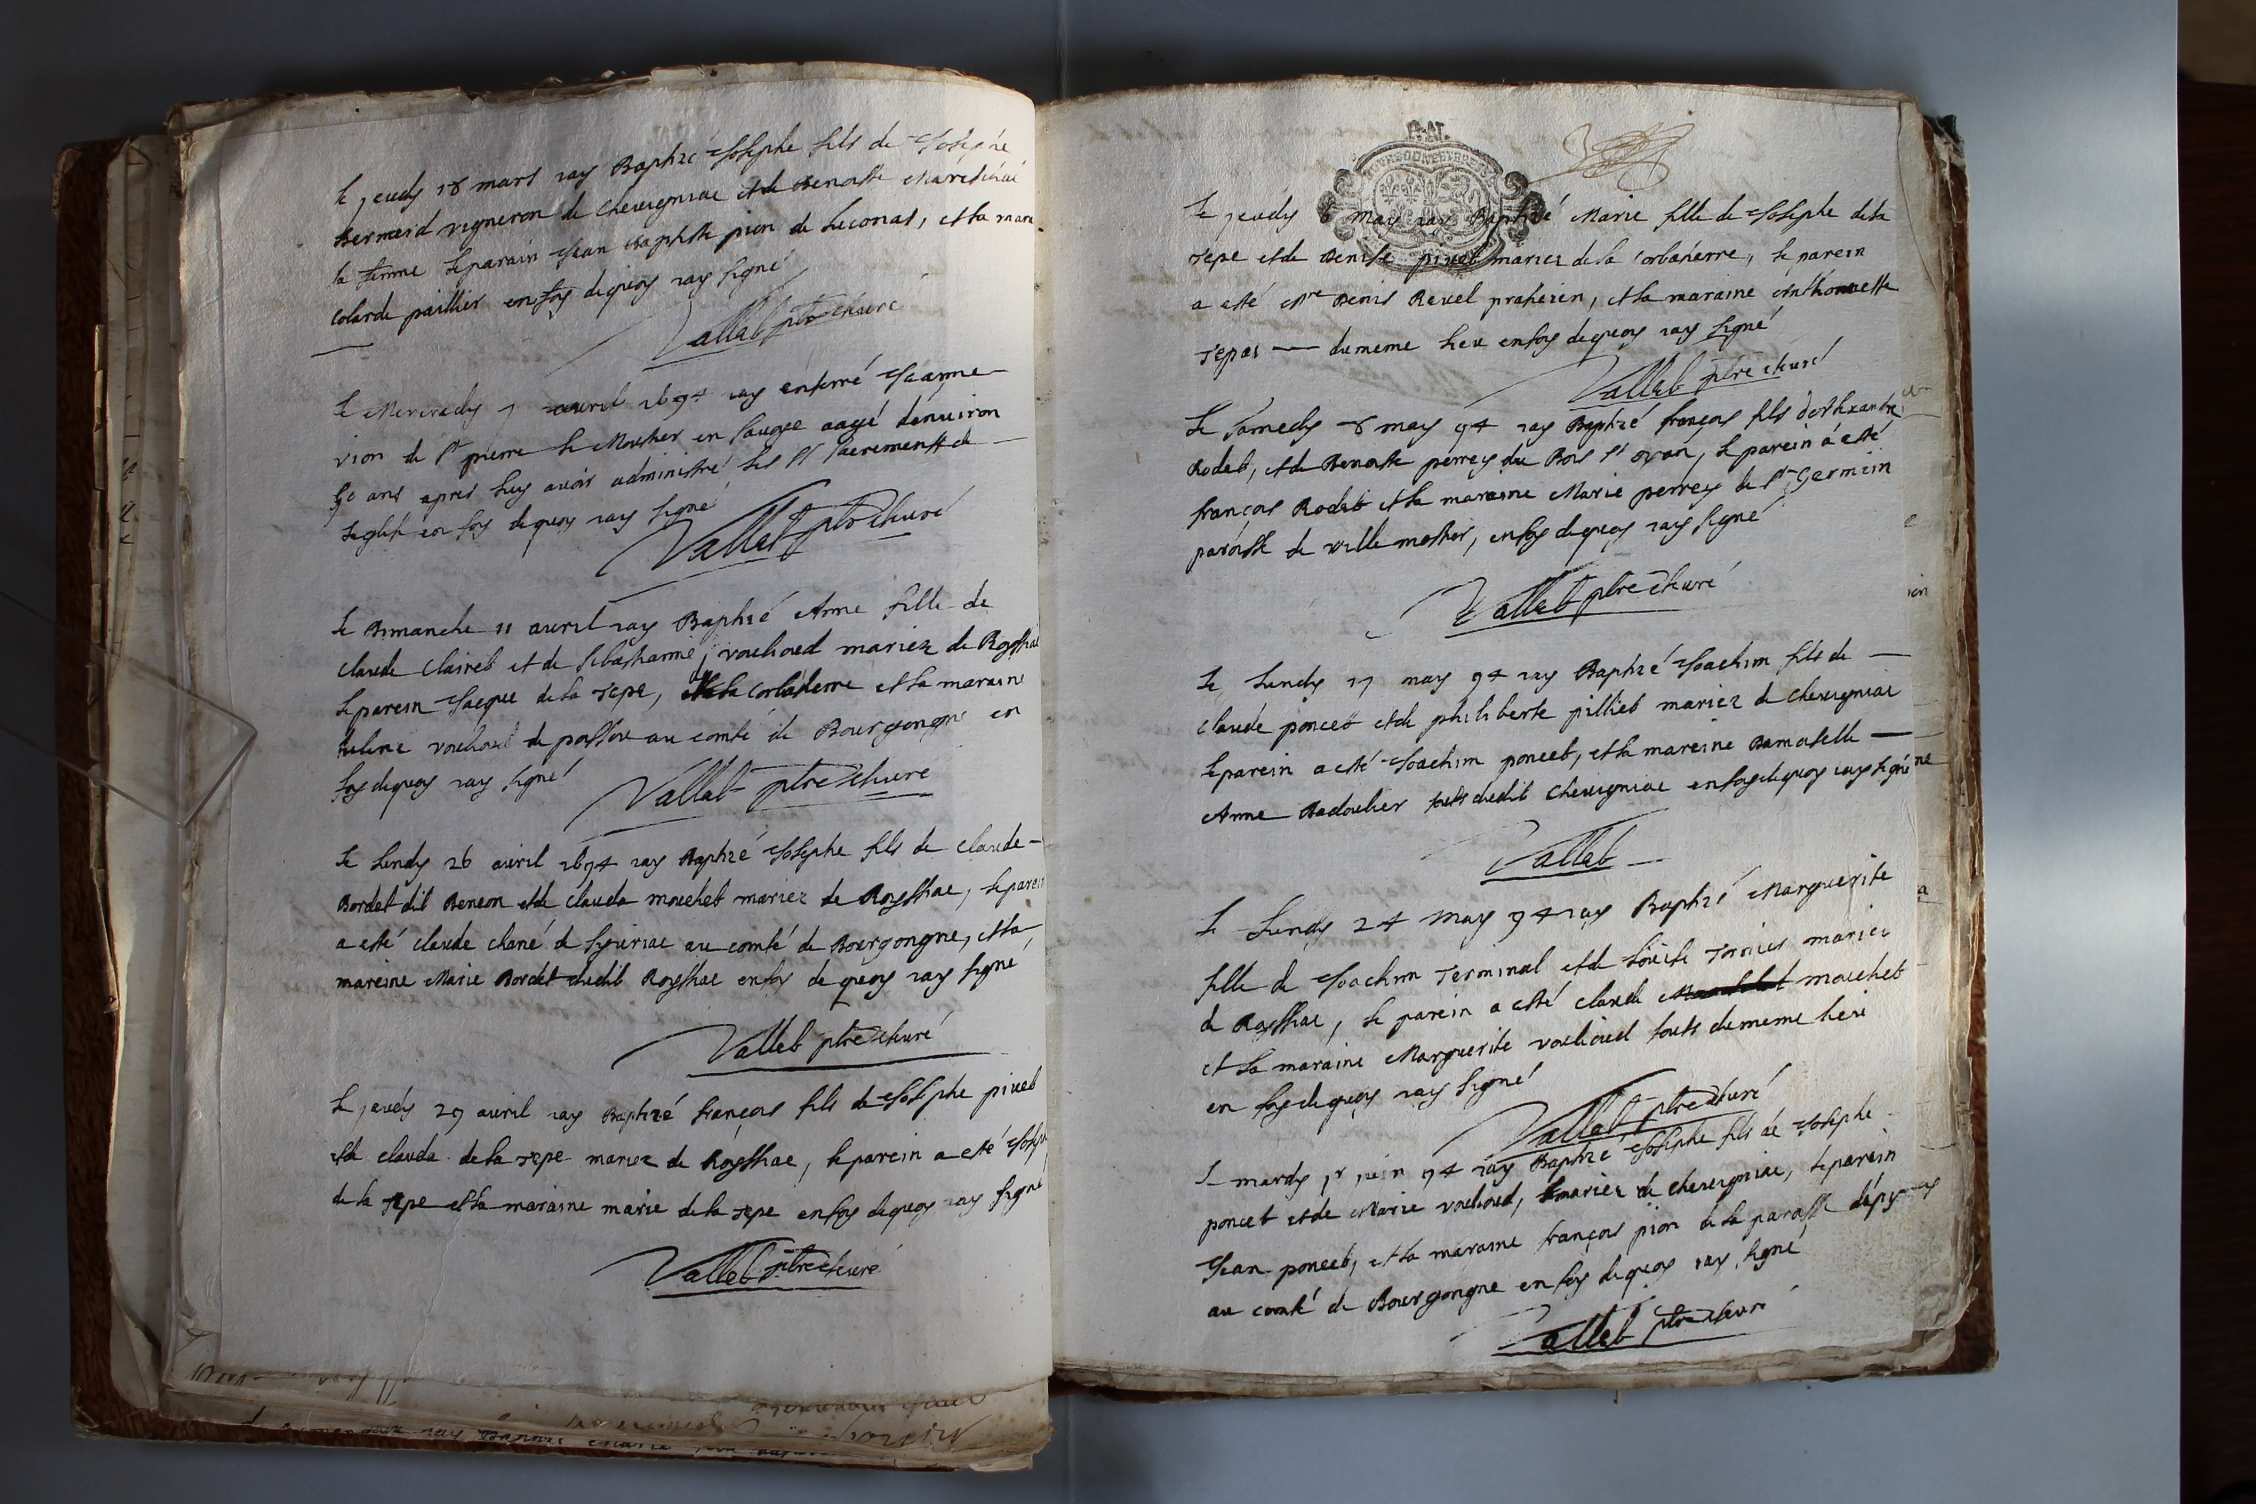 le jeudy 18 mars jay Baptizé Josephe fils de Josephe
Bermerd vigneron de Chevigniac et de Benoiste
la femme le parain Jean Baptiste pion de Leconat, et la mara
Colarde paillier en foy dequoy jay signé
Vallet ptre Curé
le Mercredy 7 avril 1694 jay enterré Jeanne
vion de St pierre le Moutier en aagé denuiron
50 ans apres luy avoir administré les Sts Sacrements de
leglise en foy dequoy jay signé
Vallet ptre Curé
le Dimanche 11 avril jay Baptizé Anne fille de
Claude Clairet et de Sebastianne vouhoud mariez de Royssiac
le parein Jacque de la repe, de la Corbaterre et la maraine
vouhoud de au comté de Bourgongne en
foy dequoy jay signé
Vallet ptre Curé
le Lundy 26 avril 1694 jay Baptizé Josephe fils de Claude
Bordet dit Beneon et de Clauda mouchet mariez de Royssiac, le parein
a esté Claude Chané de au comté de Bourgongne, et la
mareine Marie Bordet dudit Royssiac en foy de quoy jay signé
Vallet ptre Curé
le jeudy 29 avril jay Baptizé françois fils de Josephe piuet
et de Clauda de la repe mariez de Royssiac, le parein a esté Josephe
de la repe et la maraine marie de la repe en foy dequoy jay signé
Vallet ptre Curé
le jeudy 6 may jay Baptizé Marie fille de Josephe de la
repe et de Denise piuet mariez de la Corbaterre, le parein
a esté Mre Denis Revel praticien, et la maraine Anthonette
repes du meme lieu en foy dequoy jay signé
Vallet ptre Curé
le Samedy 8 may 94 jay Baptizé françois fils d'Alexandre
Rodet, et de Benoiste perrey du Bois St oyan, le parein a esté
françois Rodet et la maraine Marie perrey de St Germein
paroisse de ville motier, en foy dequoy jay signé
Vallet ptre Curé
le Lundy 17 may 94 jay Baptizé Joachim fils de
Claude poncet et de philiberte pilliet mariez de Chevigniac
le parein a esté Joachim poncet, et la mareine Damoiselle
Anne Badoulier touts dudit Chevigniac en foy dequoy jay signé
Vallet
le Lundy 24 may 94 jay Baptizé Marguerite
fille de Joachim Terminal et de mariez
de Royssiac, le parein a esté Claude mouchet
et la maraine Marguerite vouhoud touts du meme lieu
en foy dequoy jay signé
Vallet ptre Curé
le mardy 1r juin 94 jay Baptizé Josephe fils de Josephe
poncet et de Marie vouhoud, mariez de Chevigniac, le parein
Jean poncet, et la maraine françois pion de la paroisse
au comté de Bourgongne en foy dequoy jay signé
Vallet ptre Curé